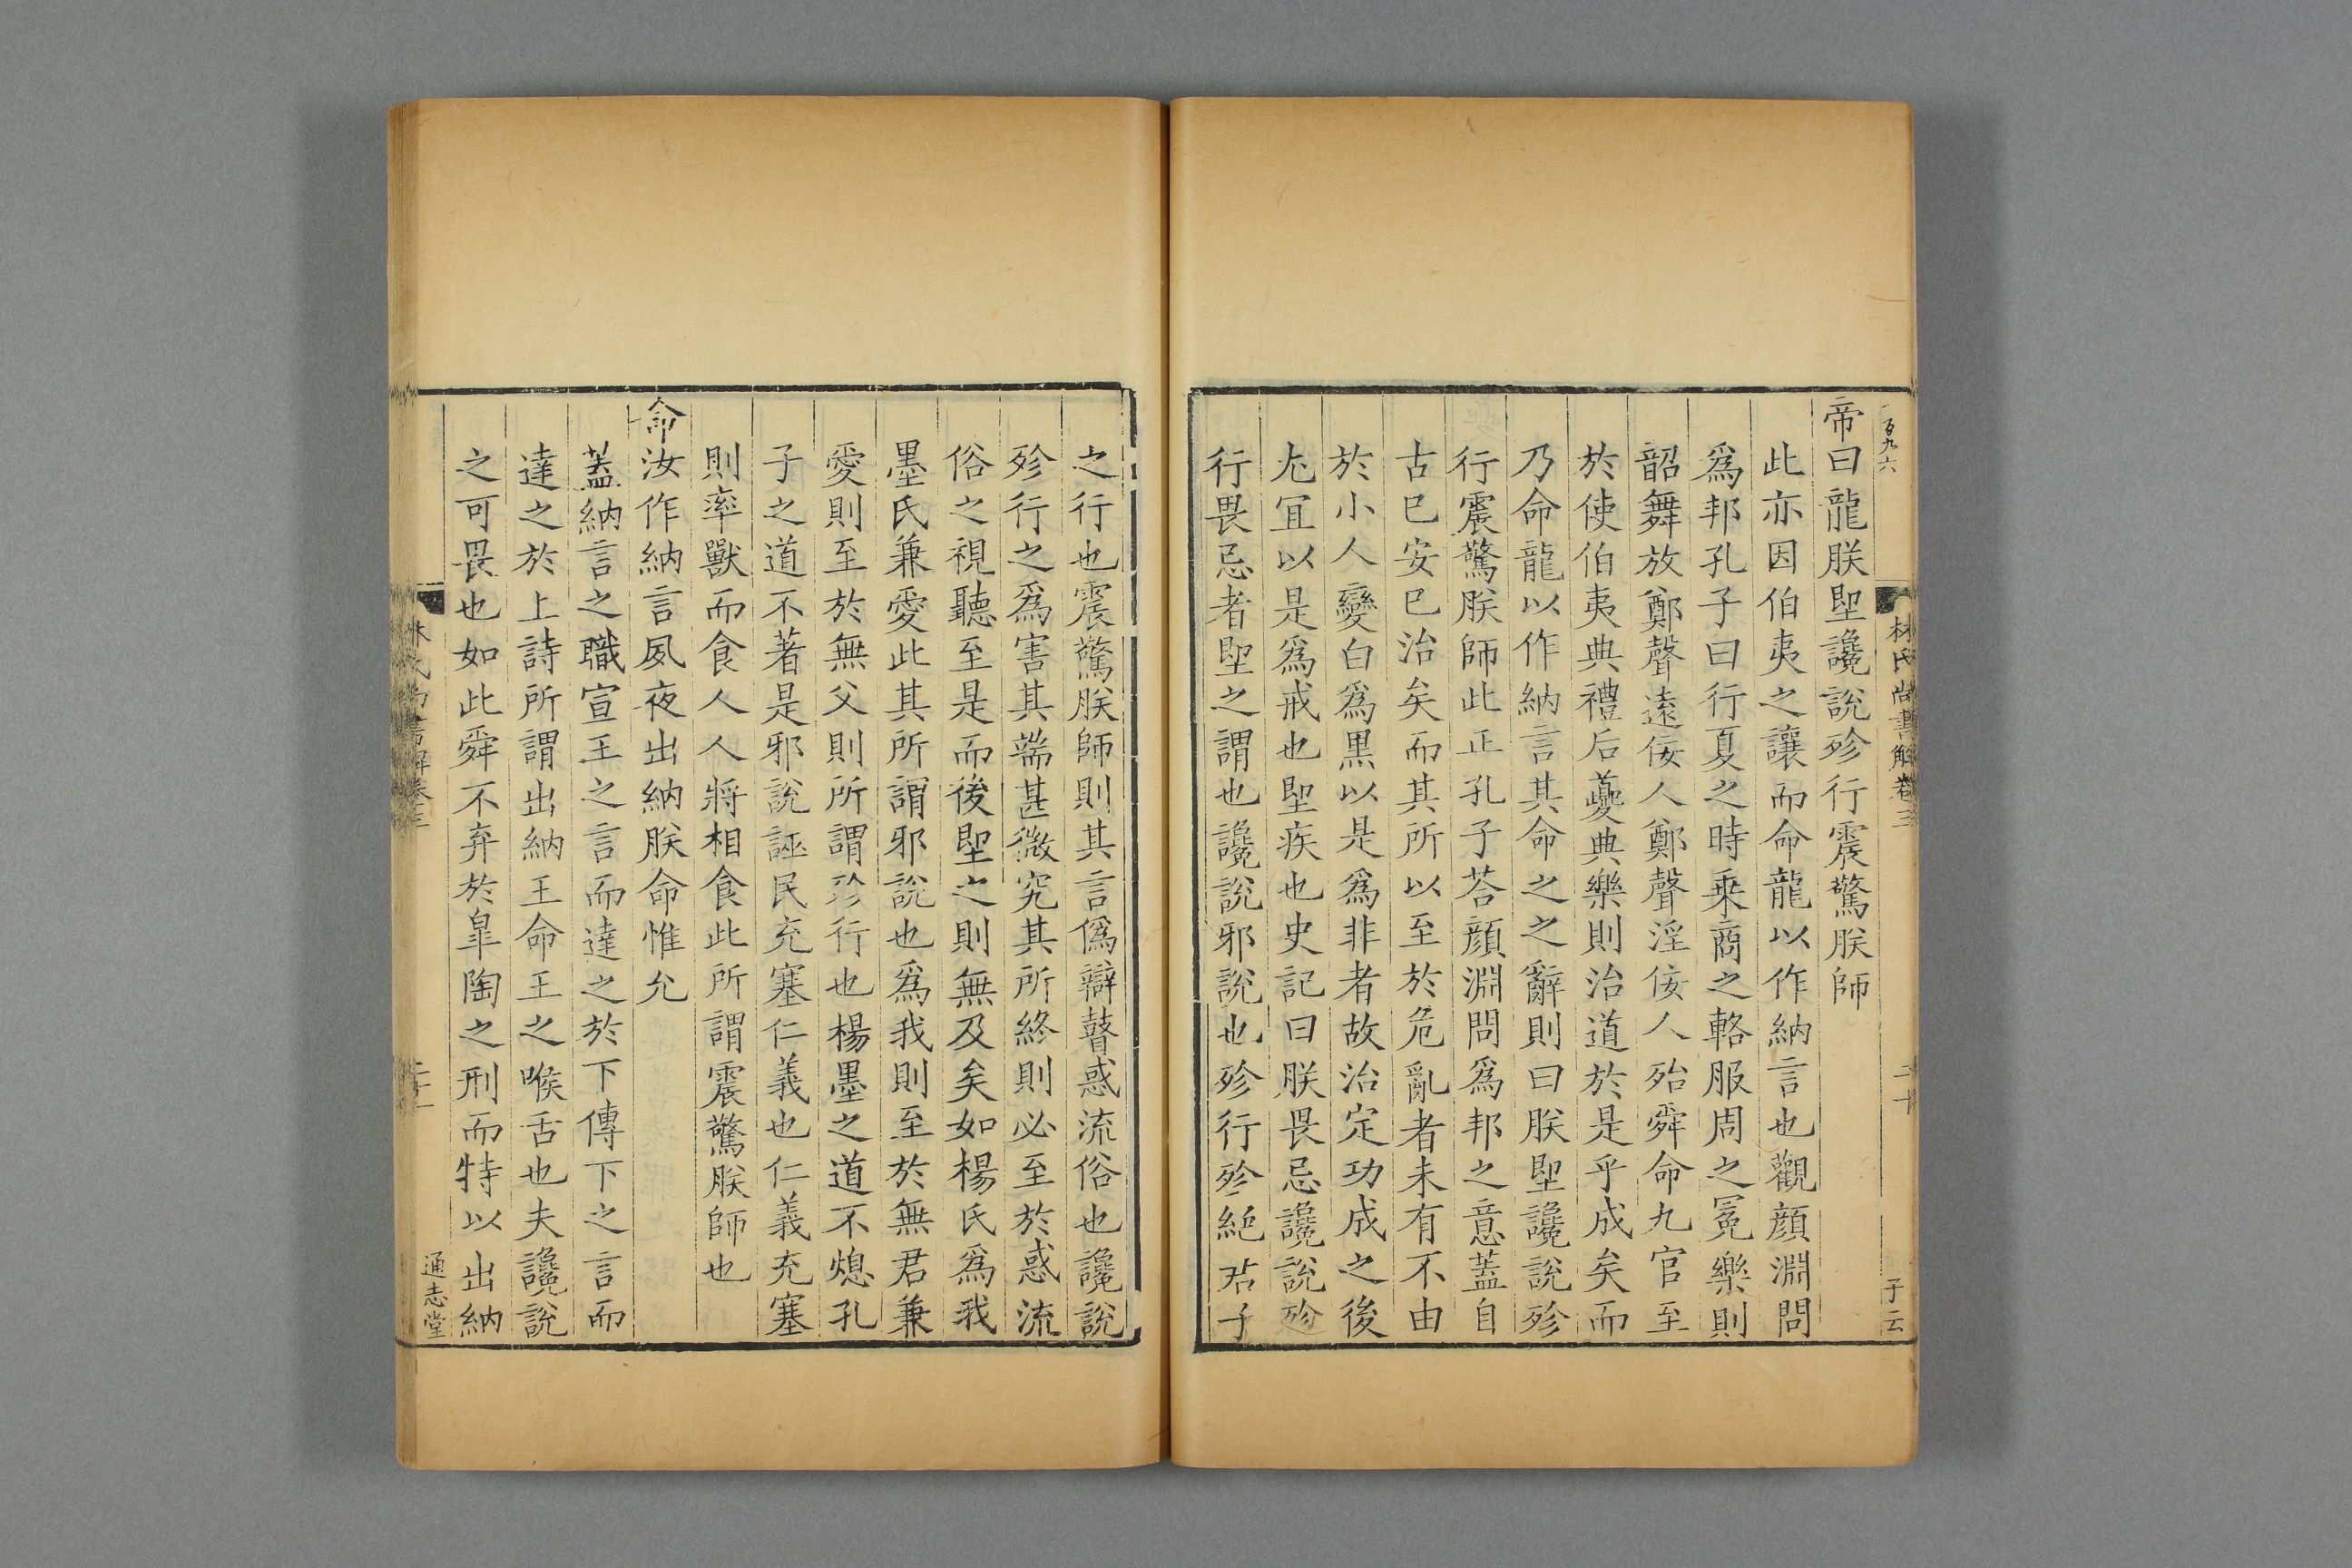 百九六
林氏尚書解卷三
二十
子云
帝曰龍朕堲讒說殄行震驚朕師
此亦因伯夷之讓而命龍以作納言也觀顔淵問
爲邦孔子曰行夏之時乗商之輅服周之冕樂則
韶舞放鄭聲遠佞人鄭聲淫佞人殆舜命九官至
於使伯夷典禮后夔典樂則治道於是乎成矣而
乃命龍以作納言其命之之辭則曰朕堲讒說殄
行震驚朕師此正孔子荅顔淵問爲邦之意蓋自
古已安已治矣而其所以至於危亂者未有不由
於小人變白爲黒以是爲非者故治定功成之後
尤冝以是爲戒也堲疾也史記曰朕畏忌讒說殄
行畏忌者堲之謂也讒說邪說也殄行殄絶君子
之行也震驚朕師則其言僞辯瞽惑流俗也讒說
殄行之爲害其端甚微究其所終則必至於惑流
俗之視聽至是而後堲之則無及矣如楊氏爲我
墨氏兼愛此其所謂邪說也爲我則至於無君兼
愛則至於無父則所謂殄行也楊墨之道不熄孔
子之道不著是邪說誣民充塞仁義也仁義充塞
則率獸而食人人將相食此所謂震驚朕師也
命汝作納言夙夜出納朕命惟允
蓋納言之職宣王之言而達之於下傳下之言而
達之於上詩所謂出納王命王之喉舌也夫讒說
之可畏也如此舜不弃於臯陶之刑而特以出納
通志堂